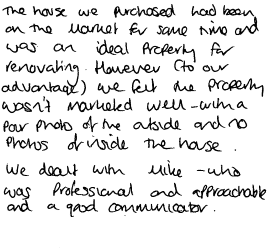 The house we purchased had been
on the market for some time and
was an ideal property for
renovating. However (to our
advantage) we felt the property
wasn't marketed well - with a
poor photo of the outside and no
photos of inside the house.
We dealt with Mike - who
was professional and approachable
and a good communicator.